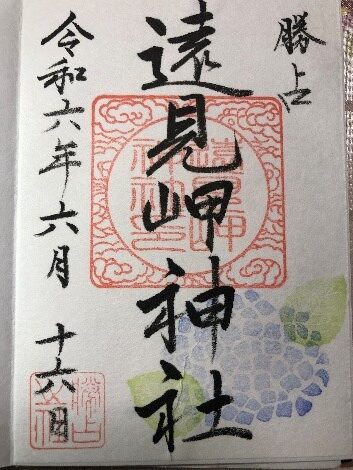 勝占
遠見岬神社
令和六年六月十六日
遠見岬
神社印